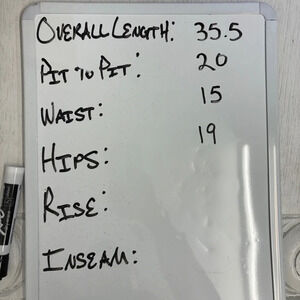 OVERALL LENGTH: 35.5
PIT TO PIT: 20
WAIST: 15
HIPS: 19
RISE:
INSEAM: